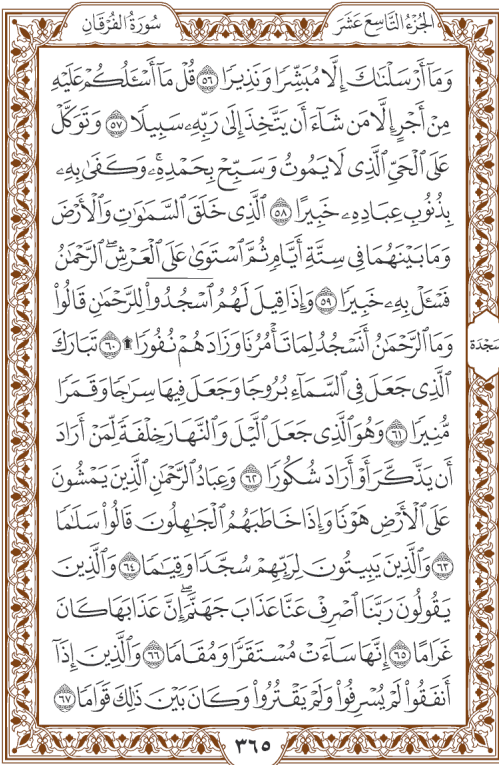 الجُزْءُ التَّاسِعَ عَشَرَ
سُورَةُ الفُرْقَانِ
وَمَآ أَرْسَلْنَٰكَ إِلَّا مُبَشِّرًا وَنَذِيرًا ۝٥٦ قُلْ مَآ أَسْـَٔلُكُمْ عَلَيْهِ
مِنْ أَجْرٍ إِلَّا مَن شَآءَ أَن يَتَّخِذَ إِلَىٰ رَبِّهِۦ سَبِيلًا ۝٥٧ وَتَوَكَّلْ
عَلَى ٱلْحَىِّ ٱلَّذِى لَا يَمُوتُ وَسَبِّحْ بِحَمْدِهِۦ ۚ وَكَفَىٰ بِهِۦ
بِذُنُوبِ عِبَادِهِۦ خَبِيرًا ۝٥٨ ٱلَّذِى خَلَقَ ٱلسَّمَٰوَٰتِ وَٱلْأَرْضَ
وَمَا بَيْنَهُمَا فِى سِتَّةِ أَيَّامٍ ثُمَّ ٱسْتَوَىٰ عَلَى ٱلْعَرْشِ ۚ ٱلرَّحْمَٰنُ
فَسْـَٔلْ بِهِۦ خَبِيرًا ۝٥٩ وَإِذَا قِيلَ لَهُمُ ٱسْجُدُوا۟ لِلرَّحْمَٰنِ قَالُوا۟
وَمَا ٱلرَّحْمَٰنُ أَنَسْجُدُ لِمَا تَأْمُرُنَا وَزَادَهُمْ نُفُورًا ۩ ۝٦٠ تَبَارَكَ
سَجْدَة
ٱلَّذِى جَعَلَ فِى ٱلسَّمَآءِ بُرُوجًا وَجَعَلَ فِيهَا سِرَٰجًا وَقَمَرًا
مُّنِيرًا ۝٦١ وَهُوَ ٱلَّذِى جَعَلَ ٱلَّيْلَ وَٱلنَّهَارَ خِلْفَةً لِّمَنْ أَرَادَ
أَن يَذَّكَّرَ أَوْ أَرَادَ شُكُورًا ۝٦٢ وَعِبَادُ ٱلرَّحْمَٰنِ ٱلَّذِينَ يَمْشُونَ
عَلَى ٱلْأَرْضِ هَوْنًا وَإِذَا خَاطَبَهُمُ ٱلْجَٰهِلُونَ قَالُوا۟ سَلَٰمًا
۝٦٣ وَٱلَّذِينَ يَبِيتُونَ لِرَبِّهِمْ سُجَّدًا وَقِيَٰمًا ۝٦٤ وَٱلَّذِينَ
يَقُولُونَ رَبَّنَا ٱصْرِفْ عَنَّا عَذَابَ جَهَنَّمَ ۖ إِنَّ عَذَابَهَا كَانَ
غَرَامًا ۝٦٥ إِنَّهَا سَآءَتْ مُسْتَقَرًّا وَمُقَامًا ۝٦٦ وَٱلَّذِينَ إِذَآ
أَنفَقُوا۟ لَمْ يُسْرِفُوا۟ وَلَمْ يَقْتُرُوا۟ وَكَانَ بَيْنَ ذَٰلِكَ قَوَامًا ۝٦٧
٣٦٥